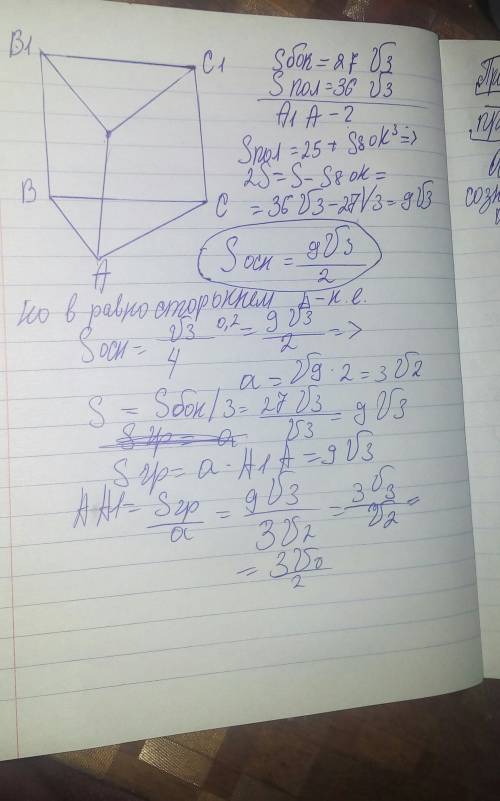 B1
C1
B
C
A
Sбок = 27 √3
Sпол = 36 √3
A1 A - ?
Sпол = 2S + Sбок³ =>
2S = S - Sбок =
= 36√3 - 27√3 = 9√3
Sосн = 9√3/2
но в равносторыннем Δ-н.е.
Sосн = √3/4 a,2 = 9√3/2 =>
a = √9·2 = 3√2
S = Sбок/3 = 27√3/√3 = 9√3
Sгр = a
Sгр = a · A1 A = 9√3
AA1 = Sгр/a = 9√3/3√2 = 3√3/√2 =
= 3√6/2
При
пр
созн